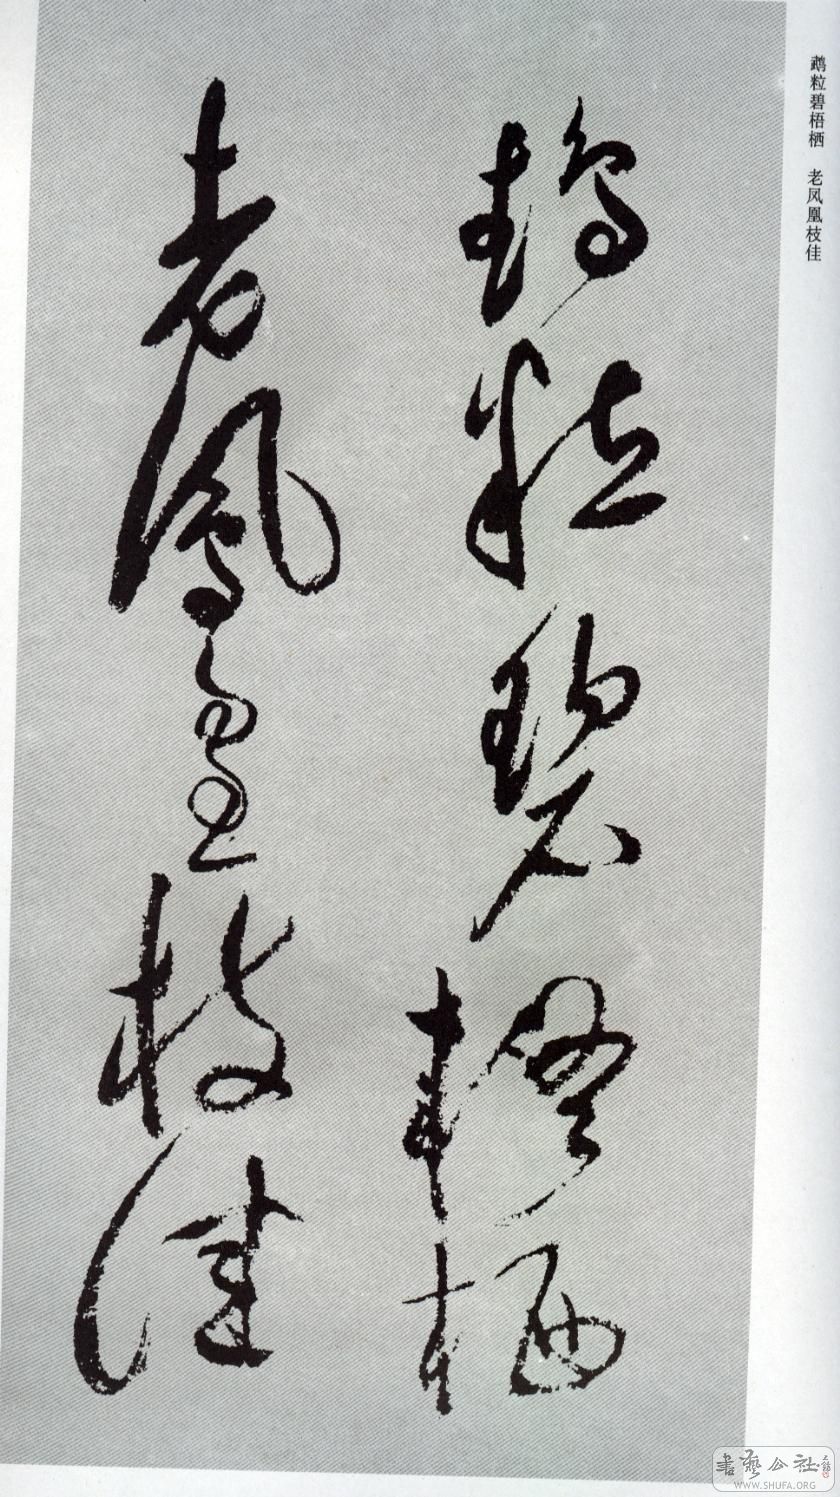 鹉粒碧梧栖 老凤凰枝佳
鵡粒碧梧栖
老鳳凰枝佳
書藝公社
WWW.SHUFA.ORG